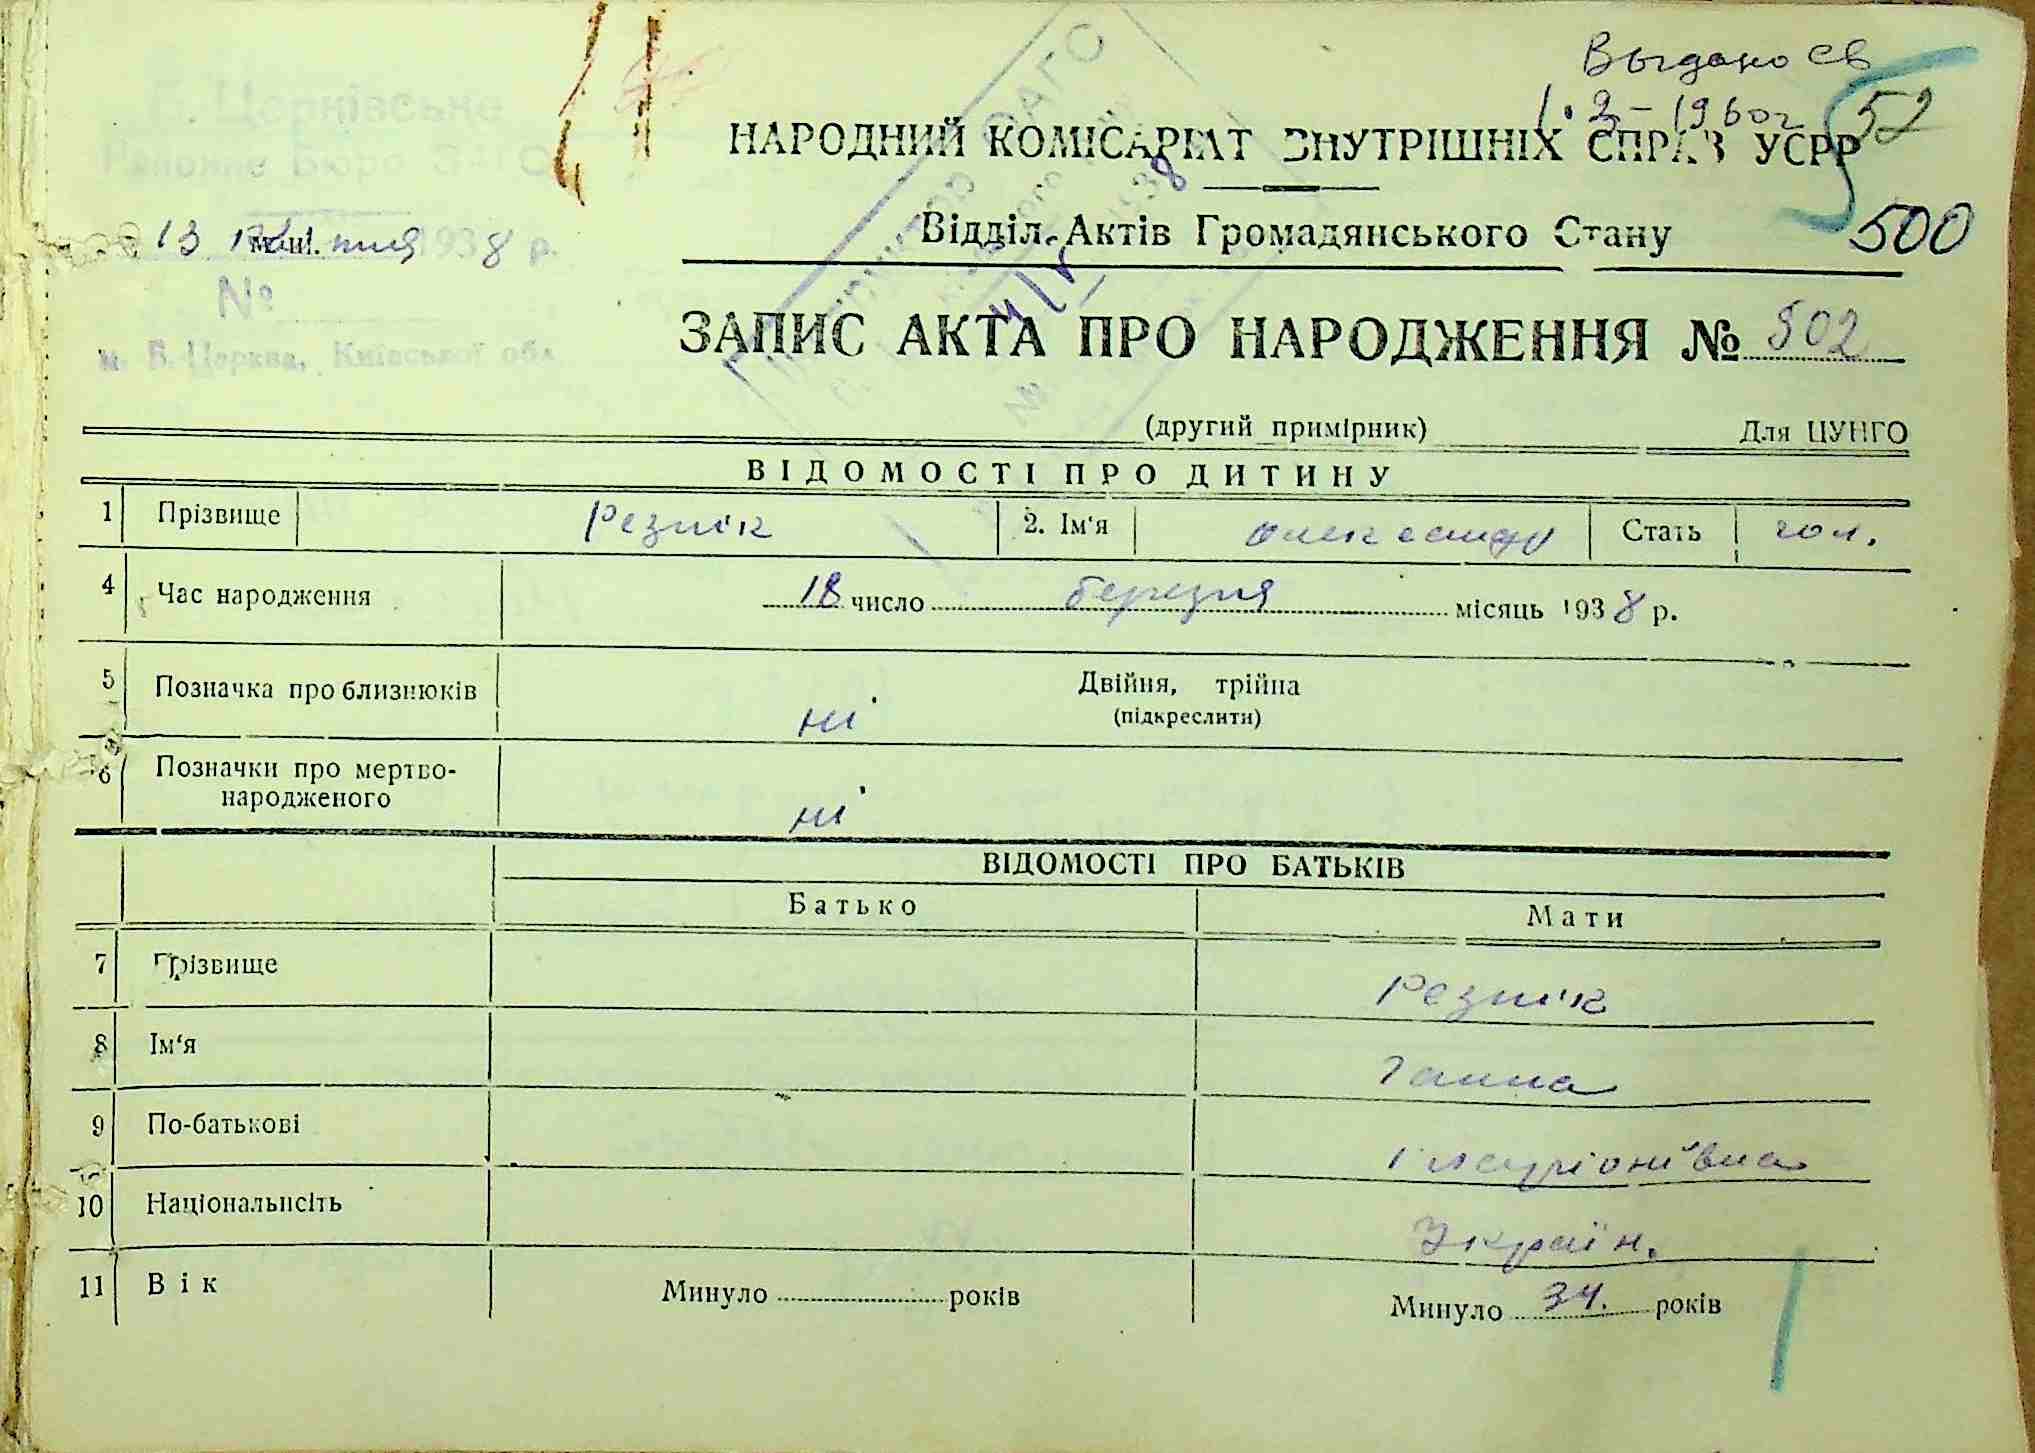 Выдано св
1.2-1960г
52
Б. Церківське
Районне Бюро ЗАГС
НАРОДНИЙ КОМІСАРІАТ ВНУТРІШНІХ СПРАВ УСРР
13 1938 р.
Відділ Актів Громадянського Стану
500
№
м. Б. Церква, Київської обл.
ЗАПИС АКТА ПРО НАРОДЖЕННЯ № 502
(другий примірник) Для ЦУНГО
ВІДОМОСТІ ПРО ДИТИНУ
1 Прізвище Резнік 2. Ім'я Олександр Стать чол.
4 Час народження 18 число березня місяць 1938 р.
5 Позначка про близнюків ні Двійня, трійна
(підкреслити)
6 Позначки про мертво-
народженого ні
ВІДОМОСТІ ПРО БАТЬКІВ
Батько Мати
7 Прізвище Резнік
8 Ім'я Ганна
9 По-батькові Іларіонівна
10 Національнсіть Україн.
11 Вік Минуло років Минуло 34. років